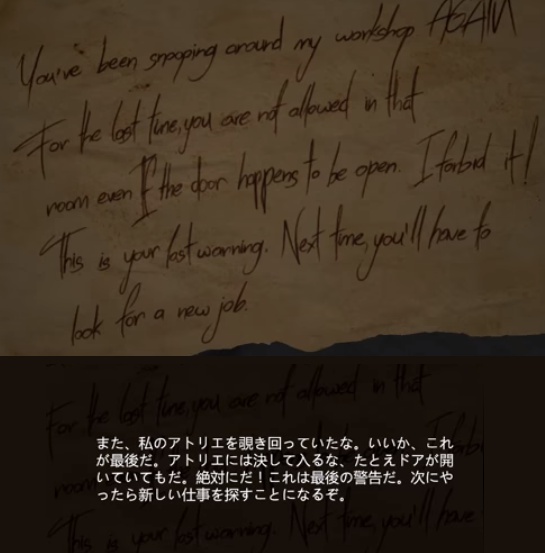 You've been snooping around my workshop AGAIN
For the last time, you are not allowed in that
room even If the door happens to be open. I forbid it!
This is your last warning. Next time, you'll have to
look for a new job.
For the last time, you are not allowed in that
また、私のアトリエを覗き回っていたな。いいか、これ
が最後だ。アトリエには決して入るな、たとえドアが開
いていてもだ。絶対にだ！これは最後の警告だ。次にや
ったら新しい仕事を探すことになるぞ。
This is your last warning. Next time, you'll have